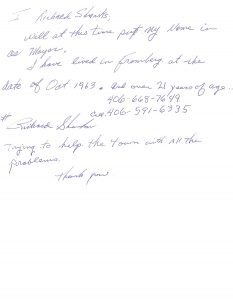 I Richard Shanks,
will at this time putt my Name in
as Mayor.
I have lived in Fromberg at the
date of Oct 1963. and over 21 years of age..
406-668-7649
Cell. 406-591-6335
# Richard
Trying to help the Town with All the
problems.
Thank you